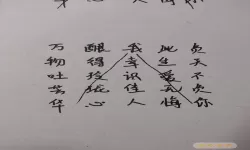 万物吐芳华
醒得玲珑心
我幸识佳人
此生爱无悔
负天不负你